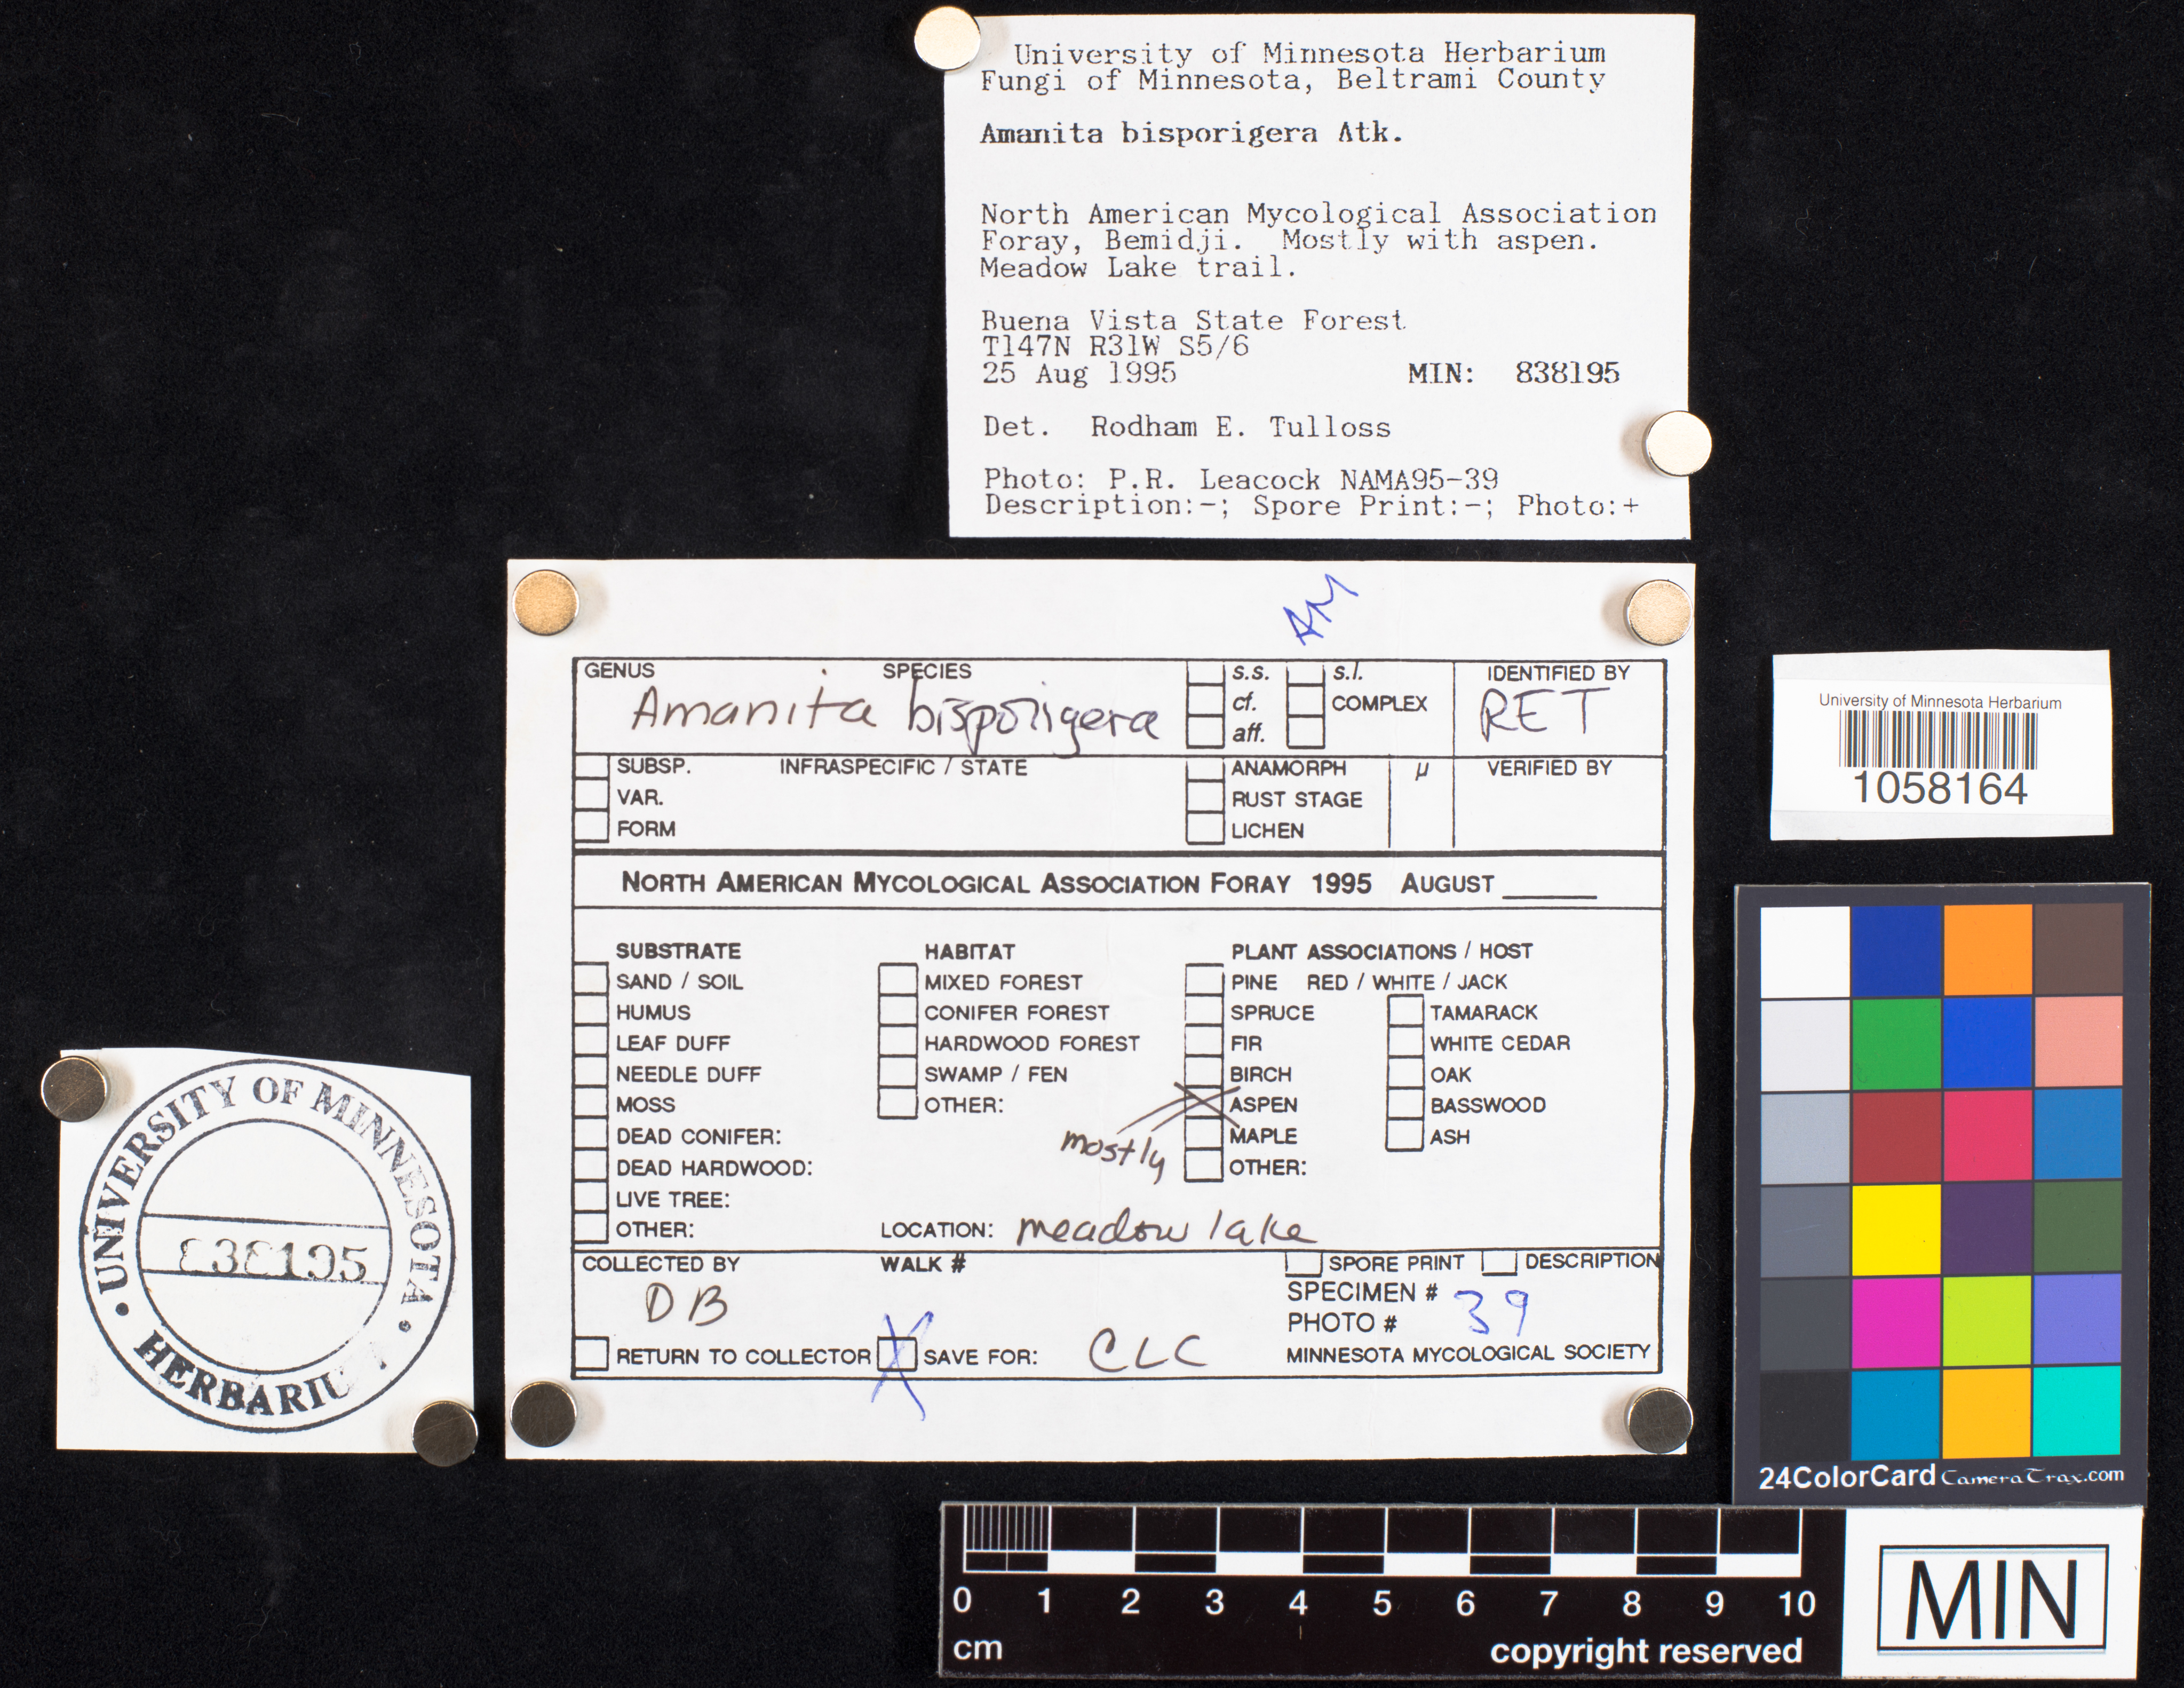 University of Minnesota Herbarium
Fungi of Minnesota, Beltrami County
Amanita bisporigera Atk.
North American Mycological Association
Foray, Bemidji. Mostly with aspen.
Meadow Lake trail.
Buena Vista State Forest
T147N R31W S5/6
25 Aug 1995 MIN: 838195
Det. Rodham E. Tulloss
Photo: P.R. Leacock NAMA95-39
Description:-; Spore Print:-; Photo:+
AM
GENUS SPECIES s.s. s.l. IDENTIFIED BY
Amanita bisporigera cf. COMPLEX RET
aff.
SUBSP. INFRASPECIFIC / STATE ANAMORPH µ VERIFIED BY
VAR. RUST STAGE
FORM LICHEN
NORTH AMERICAN MYCOLOGICAL ASSOCIATION FORAY 1995 AUGUST
SUBSTRATE HABITAT PLANT ASSOCIATIONS / HOST
SAND / SOIL MIXED FOREST PINE RED / WHITE / JACK
HUMUS CONIFER FOREST SPRUCE TAMARACK
LEAF DUFF HARDWOOD FOREST FIR WHITE CEDAR
NEEDLE DUFF SWAMP / FEN BIRCH OAK
MOSS OTHER: ASPEN BASSWOOD
DEAD CONIFER: mostly MAPLE ASH
DEAD HARDWOOD: OTHER:
LIVE TREE:
OTHER: LOCATION: meadow lake
COLLECTED BY WALK # SPORE PRINT DESCRIPTION
DB SPECIMEN # 39
PHOTO #
RETURN TO COLLECTOR X SAVE FOR: CLC MINNESOTA MYCOLOGICAL SOCIETY
University of Minnesota Herbarium
1058164
UNIVERSITY OF MINNESOTA
838195
HERBARIU
24ColorCard CameraTrax.com
0 1 2 3 4 5 6 7 8 9 10
cm copyright reserved
MIN